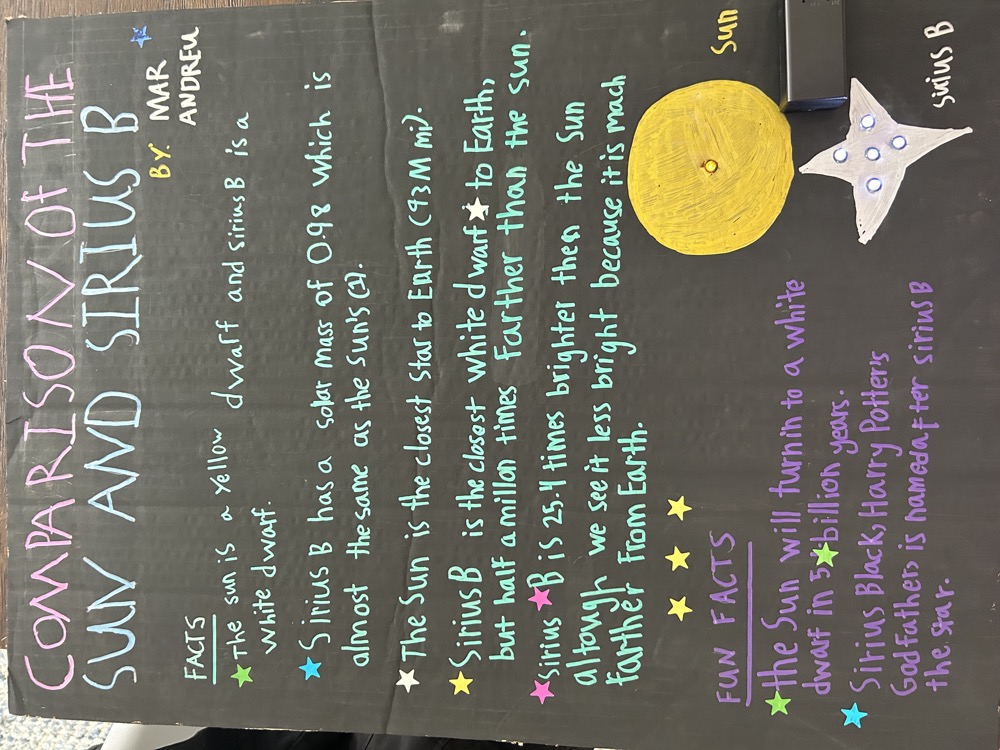 COMPARISON Of THE
SUN AND SIRIUS B
BY: MAR
ANDREU
FACTS
The sun is a yellow dwarf and sirius B is a
white dwarf.
Sirius B has a solar mass of 0.98 which is
almost the same as the sun's (1).
The Sun is the closest star to Earth (93M mi).
Sirius B is the closest white dwarf to Earth,
but half a millon times farther than the sun.
Sirius B is 25.4 times brighter then the Sun
altough we see it less bright because it is mach
farther from Earth.
FUN FACTS
the Sun will turnin to a white
dwarf in 5 billion years.
Sirius Black, Harry Potter's
Godfather, is named after sirius B
the star.
Sun
sirius B